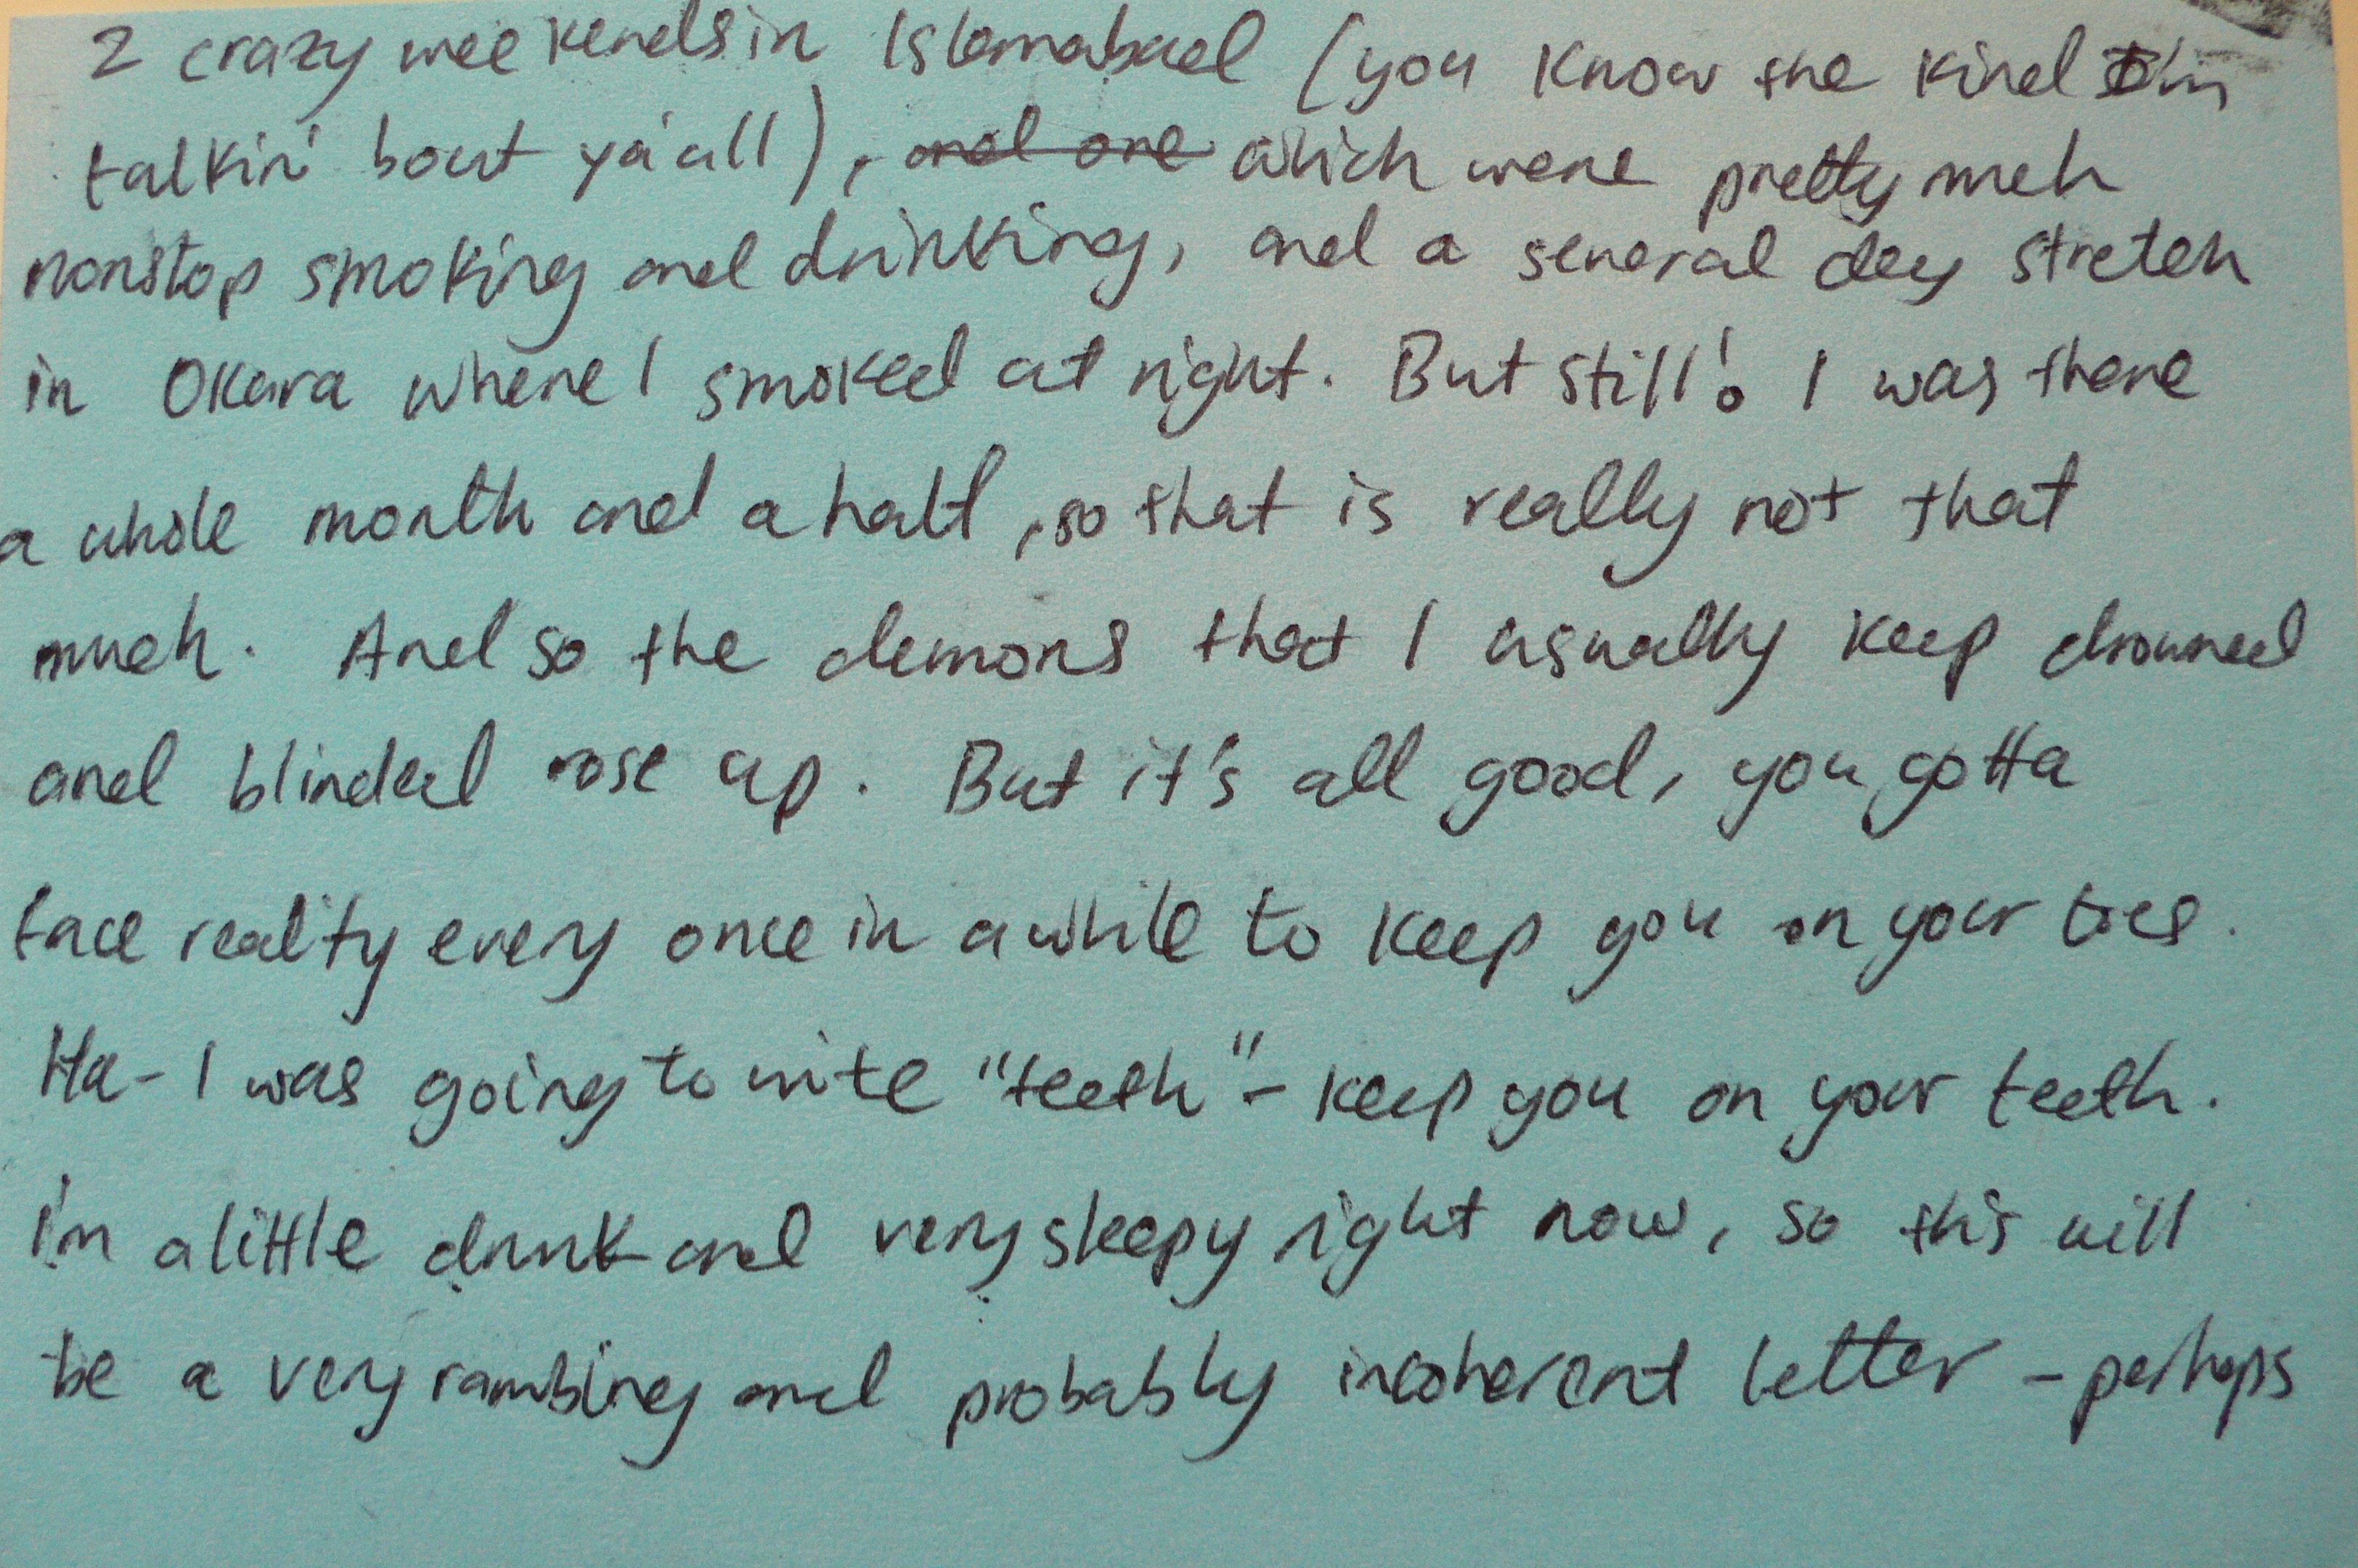 2 crazy weekends in Islamabad (you know the kind I'm
talkin' bout ya'all), and one which were pretty meh
nonstop smoking and drinking, and a several day stretch
in Okara where I smoked at night. But still! I was there
a whole month and a half, so that is really not that
much. And so the demons that I usually keep drowned
and blinded rose up. But it's all good, you gotta
face reality every once in awhile to keep you on your toes.
Ha - I was going to write "teeth" - keep you on your teeth.
I'm a little drunk and very sleepy right now, so this will
be a very rambling and probably incoherent letter - perhaps